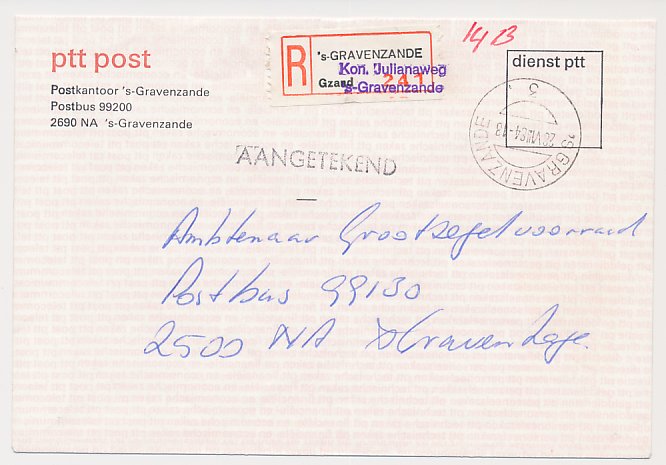 ptt post
Postkantoor 's-Gravenzande
Postbus 99200
2690 NA 's-Gravenzande
R
's-GRAVENZANDE
Kon. Julianaweg
Gzand 241
's-Gravenzande
14 B
dienst ptt
's GRAVENZANDE
5
AANGETEKEND
Ambtenaar Grootzegelvoorraad
Postbus 99130
2500 NA 's Gravenhage.